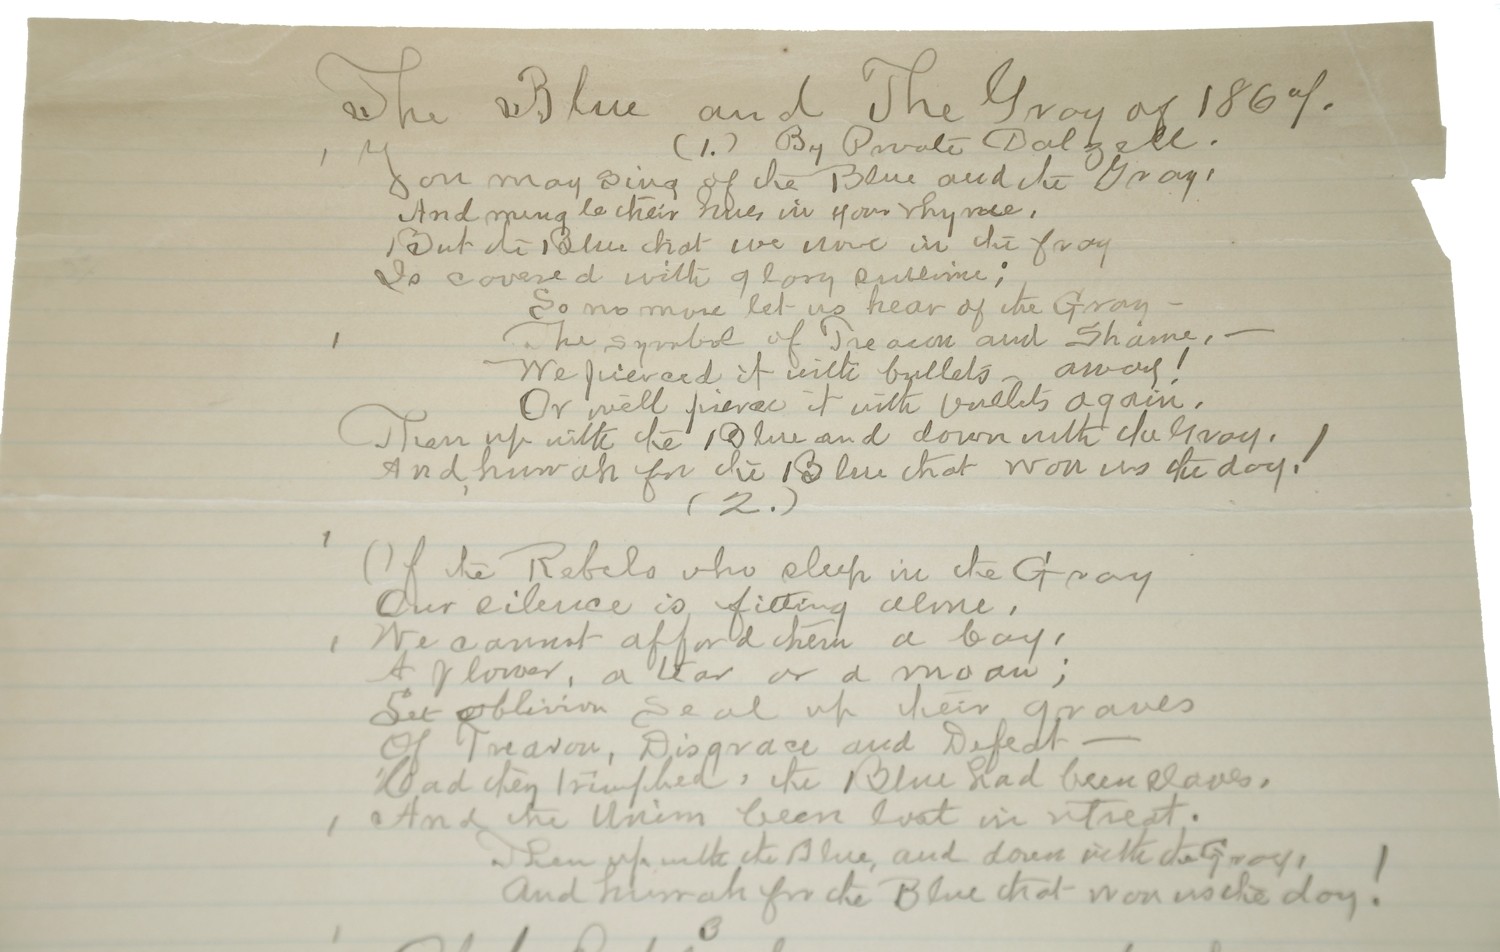 The Blue and The Gray of 186
(1.) By Private Dalzell.
You may sing of the Blue and the Gray,
And mingle their hues in your rhyme,
But the Blue that we wore in the fray
Is covered with glory sublime;
So no more let us hear of the Gray —
The symbol of Treason and Shame, —
We pierced it with bullets — away!
Or we'll pierce it with bullets again.
Then up with the Blue and down with the Gray,
And, hurrah for the Blue that won us the day!
(2.)
Of the Rebels who sleep in the Gray
Our silence is fitting alone,
We cannot afford them a bay,
A flower, a tear or a moan;
Let oblivion seal up their graves
Of Treason, Disgrace and Defeat —
Had they trimphed, the Blue had been slaves,
And the Union been lost in retreat.
Then up with the Blue, and down with the Gray,
And hurrah for the Blue that won us the day!
3